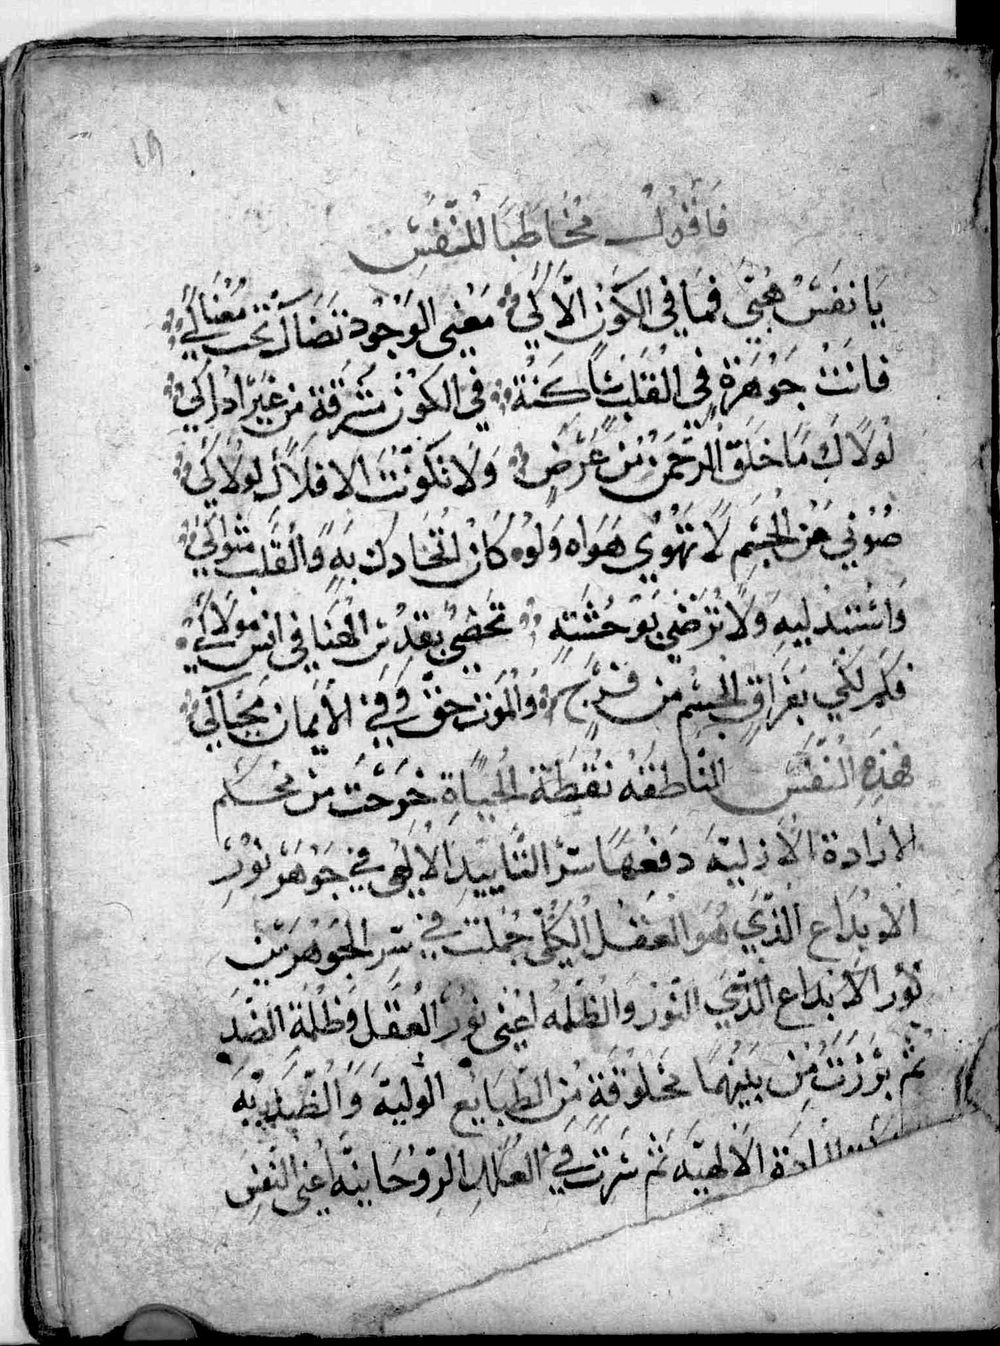 ١٩
فاقول مخاطبا للنفس
يا نفس هبي فما في الكون الاكي معني الوجود تضاال تحت معناكي
فانت جوهرة في القلب ساكنة في الكون مشرقة من غير ادراكي
لولاك ما خلق الرحمن من عرض ولا تكونت الافلاك لولاكي
صوني عن الجسم لا تهوي هواه ولو كان اتحادك به والقلب مثواكي
ولا ترضي بوحشته تحضي بقدس الهنا في انس مولاكي
فكم لكي بفراق الجسم من فرج والموت حق وفي الايمان محياكي
فهذه النفس الناطقه نقطة الحياة خرجت من محكم
الارادة الازلية دفعها سر التاييد الالهي في جوهر نور
الابداع الذي هو العقل الكلي جملت في سر الجوهرين
نور الابداع الذي النور والظلمه اعني نور العقل وظلمة الضد
ثم برزت من بينهما مخلوقة من الطبايع الوليه والضديه
الارادة الالهيه ثم سرت في الروحانيه اعني النفس